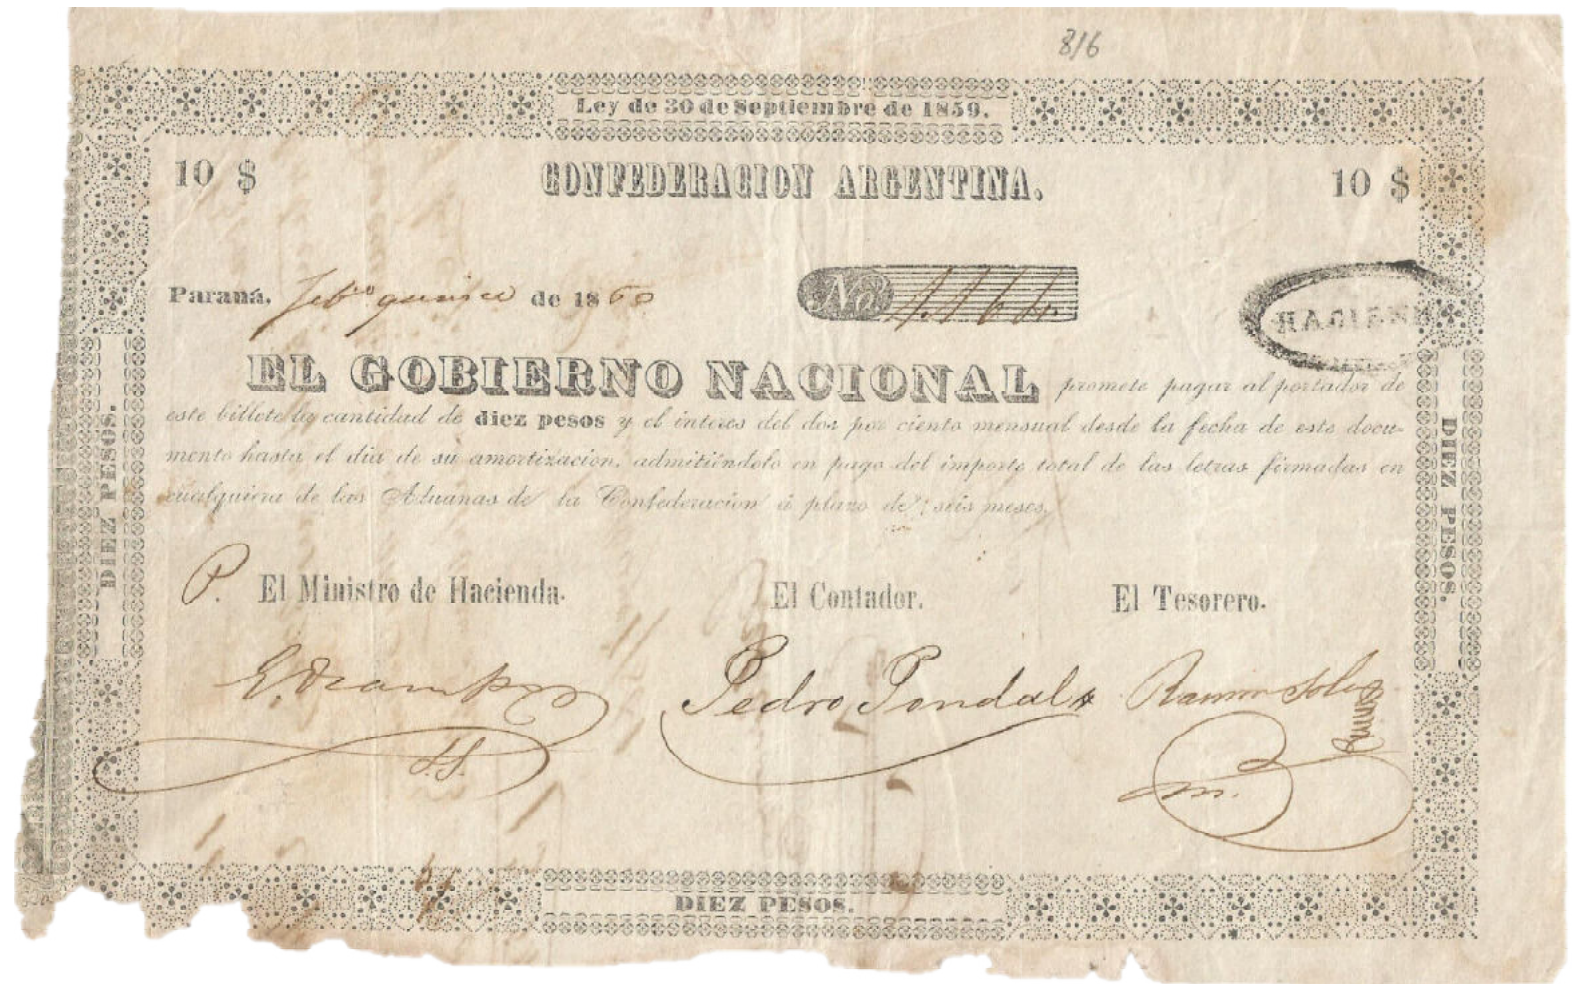 816
Ley de 30 de Septiembre de 1859.
10 $ CONFEDERACION ARGENTINA. 10 $
Paraná, Feb.ro quince de 1860 No
EL GOBIERNO NACIONAL promete pagar al portador de
este billete la cantidad de diez pesos y el interes del dos por ciento mensual desde la fecha de este docu-
mento hasta el dia de su amortizacion, admitiéndolo en pago del importe total de las letras firmadas en
cualquiera de las Aduanas de la Confederacion á plazo de seis meses.
P. El Ministro de Hacienda. El Contador. El Tesorero.
Pedro Pondal
DIEZ PESOS.
DIEZ PESOS.
DIEZ PESOS.